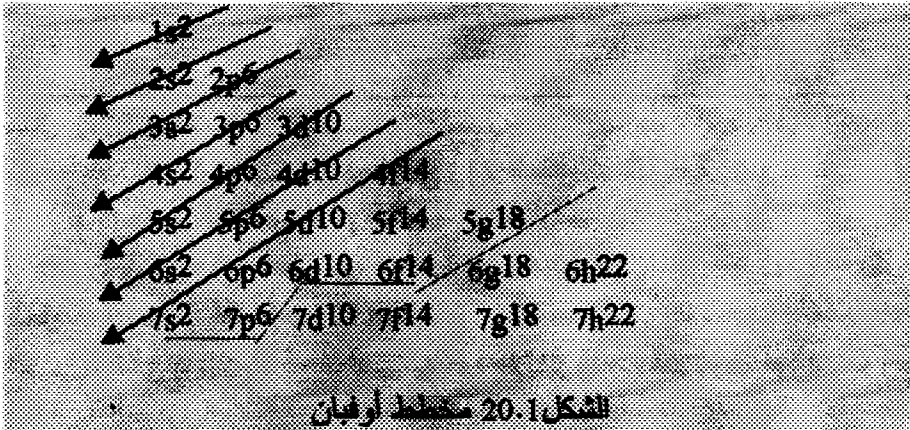 1s2
2s2 2p6
3s2 3p6 3d10
4s2 4p6 4d10 4f14
5s2 5p6 5d10 5f14 5g18
6s2 6p6 6d10 6f14 6g18 6h22
7s2 7p6 7d10 7f14 7g18 7h22
الشكل20.1 مخطط أوفبان